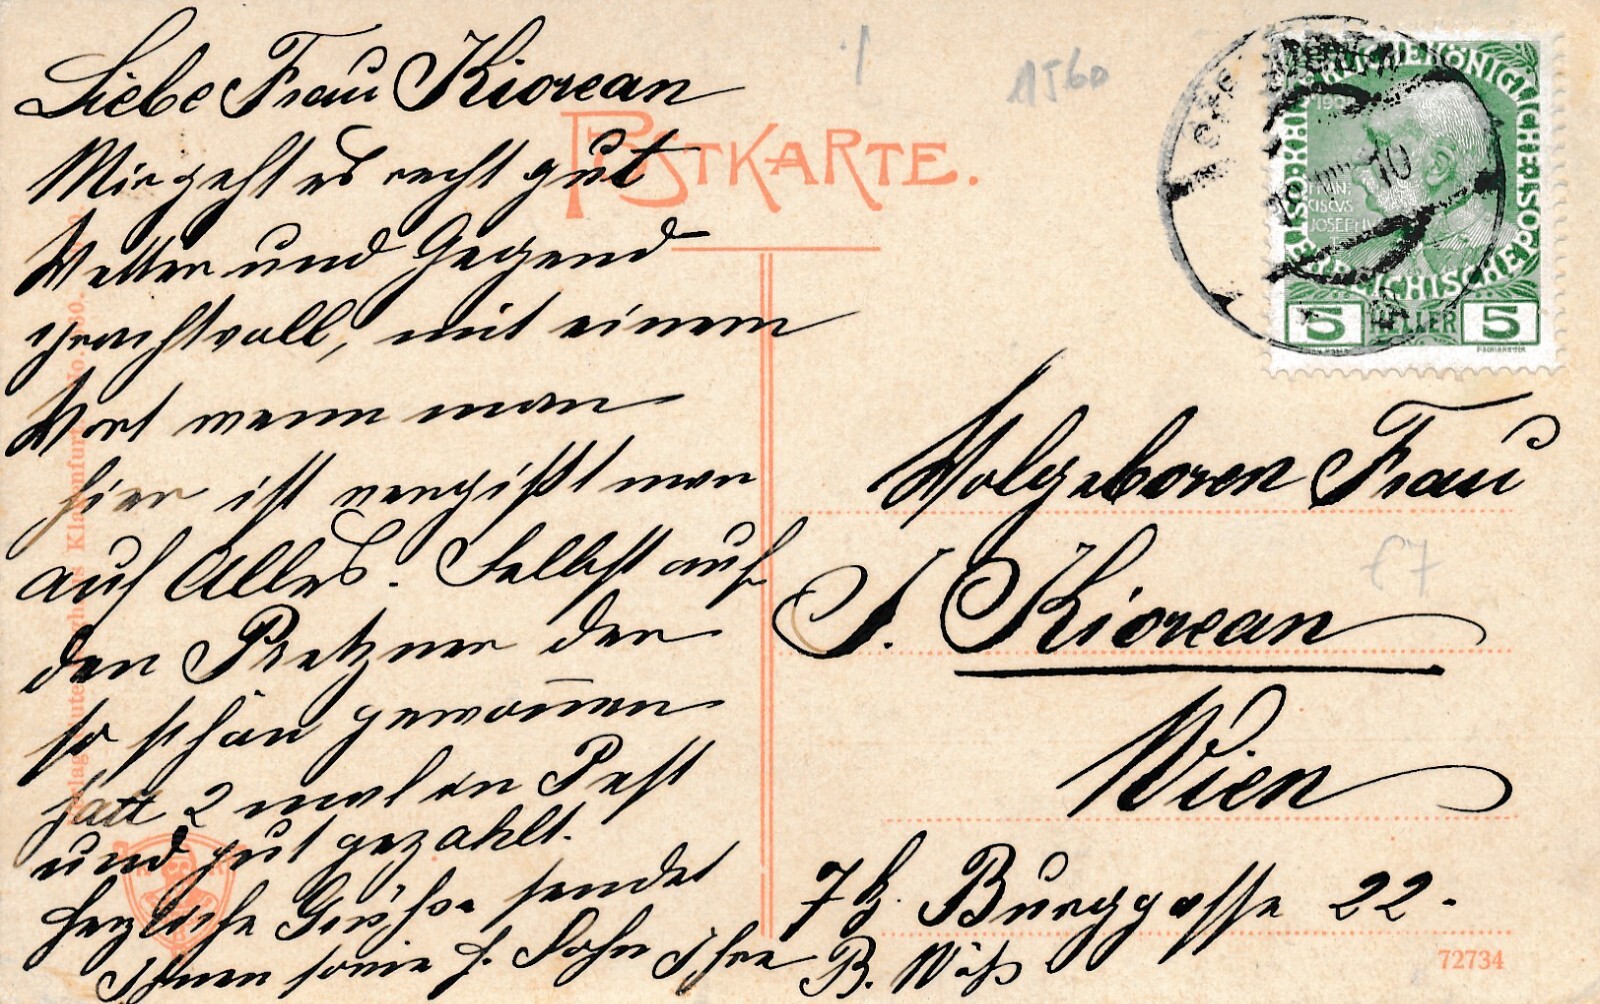 Liebe Frau Kiorean
Mir geht es recht gut
Wetter und Gegend
prachtvoll, mit einem
Wort wenn man
hier ist vergißt man
auf Alles. Selbst auf
den Pretzner der
so schön gewonnen
hatt 2 mal in Pest
und gut gezahlt.
Herzliche Grüße sendet
Ihnen sowie H. Sohn Ihre
B. Wäß
POSTKARTE.
1560
10
KAISERLICHE KÖNIGLICHE ÖSTERREICHISCHE POST
FRAN
CISCVS
JOSEPH I
5 HELLER 5
Wolgeboren Frau
J. Kiorean
Wien
7 bz. Burggasse 22.
€7
72734